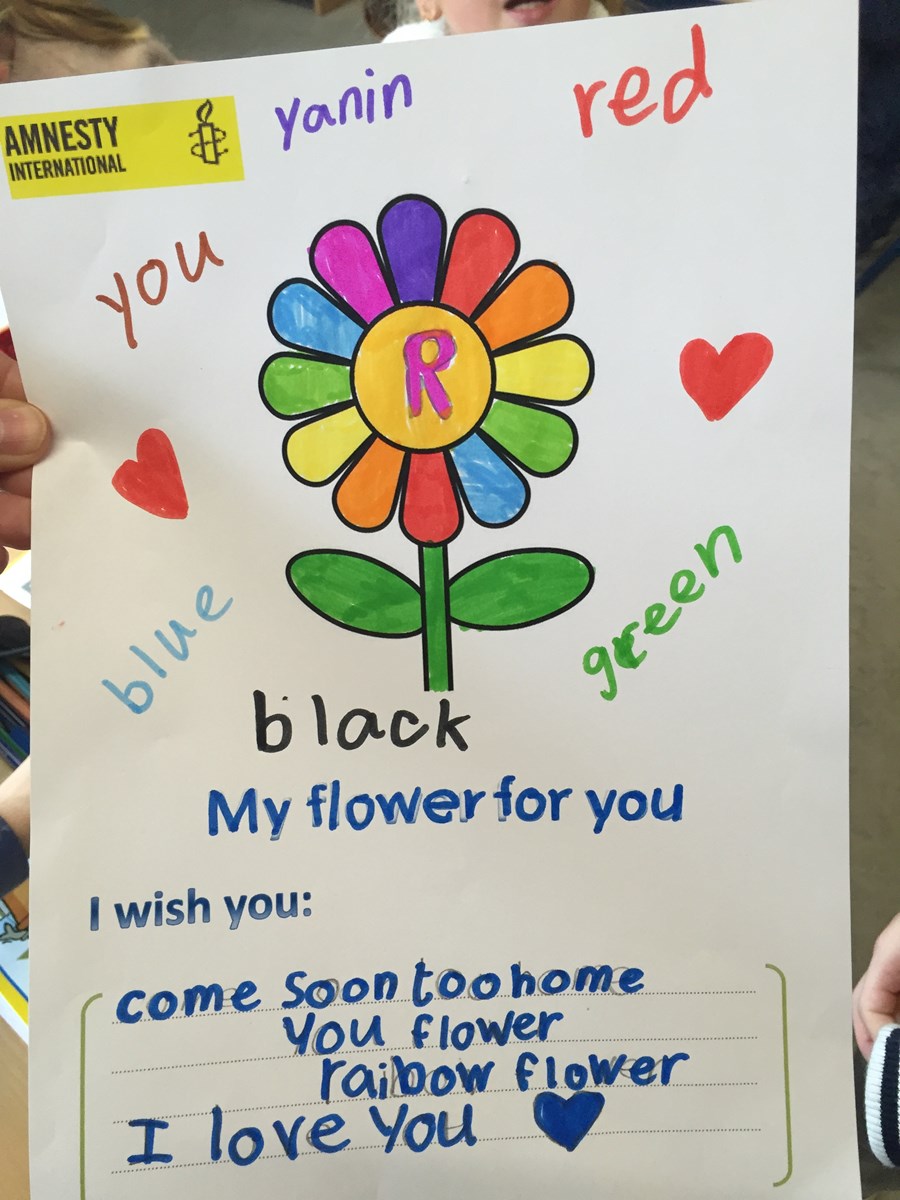 AMNESTY
INTERNATIONAL
yanin
red
you
R
blue
green
black
My flower for you
I wish you:
come soon too home
you flower
raibow flower
I love you